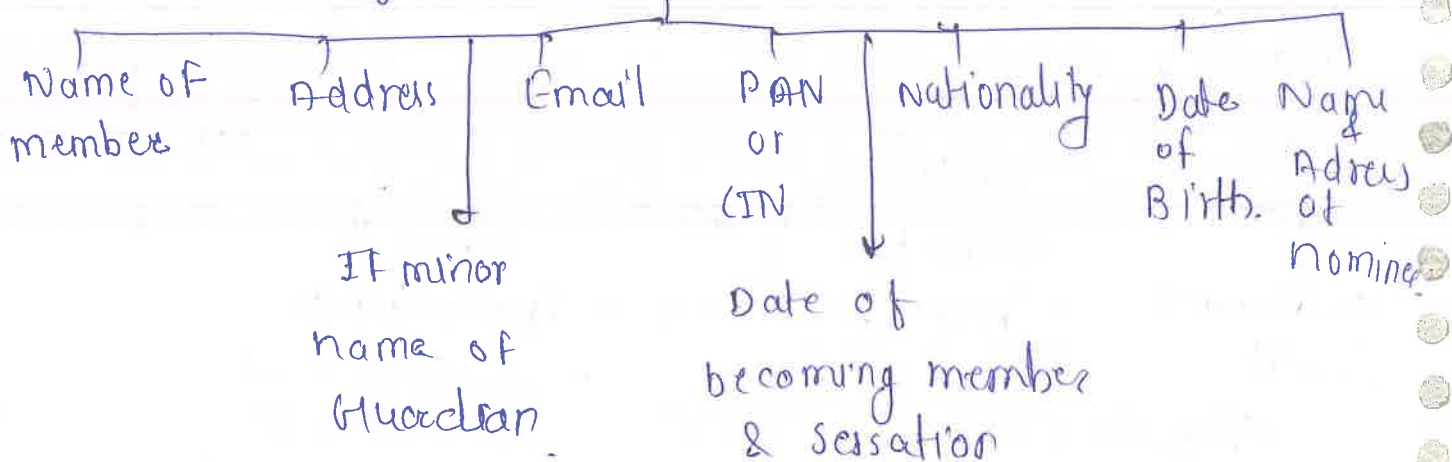 Name of
member
Address
If minor
name of
Guardian
Email
PAN
or
CIN
Date of
becoming member
& sessation
Nationality
Date
of
Birth.
Name
&
Adress
of
nominee